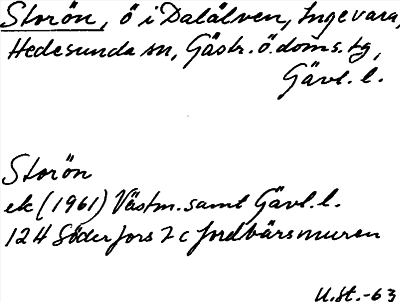 Storön, ö i Dalälven, Ingevara,
Hedesunda sn, Gästr. ö. doms. tg,
Gävl. l.
Storön
ek (1961) Västm. samt Gävl. l.
12H Söderfors 7 c Jordbärsmuren
U. St. -63